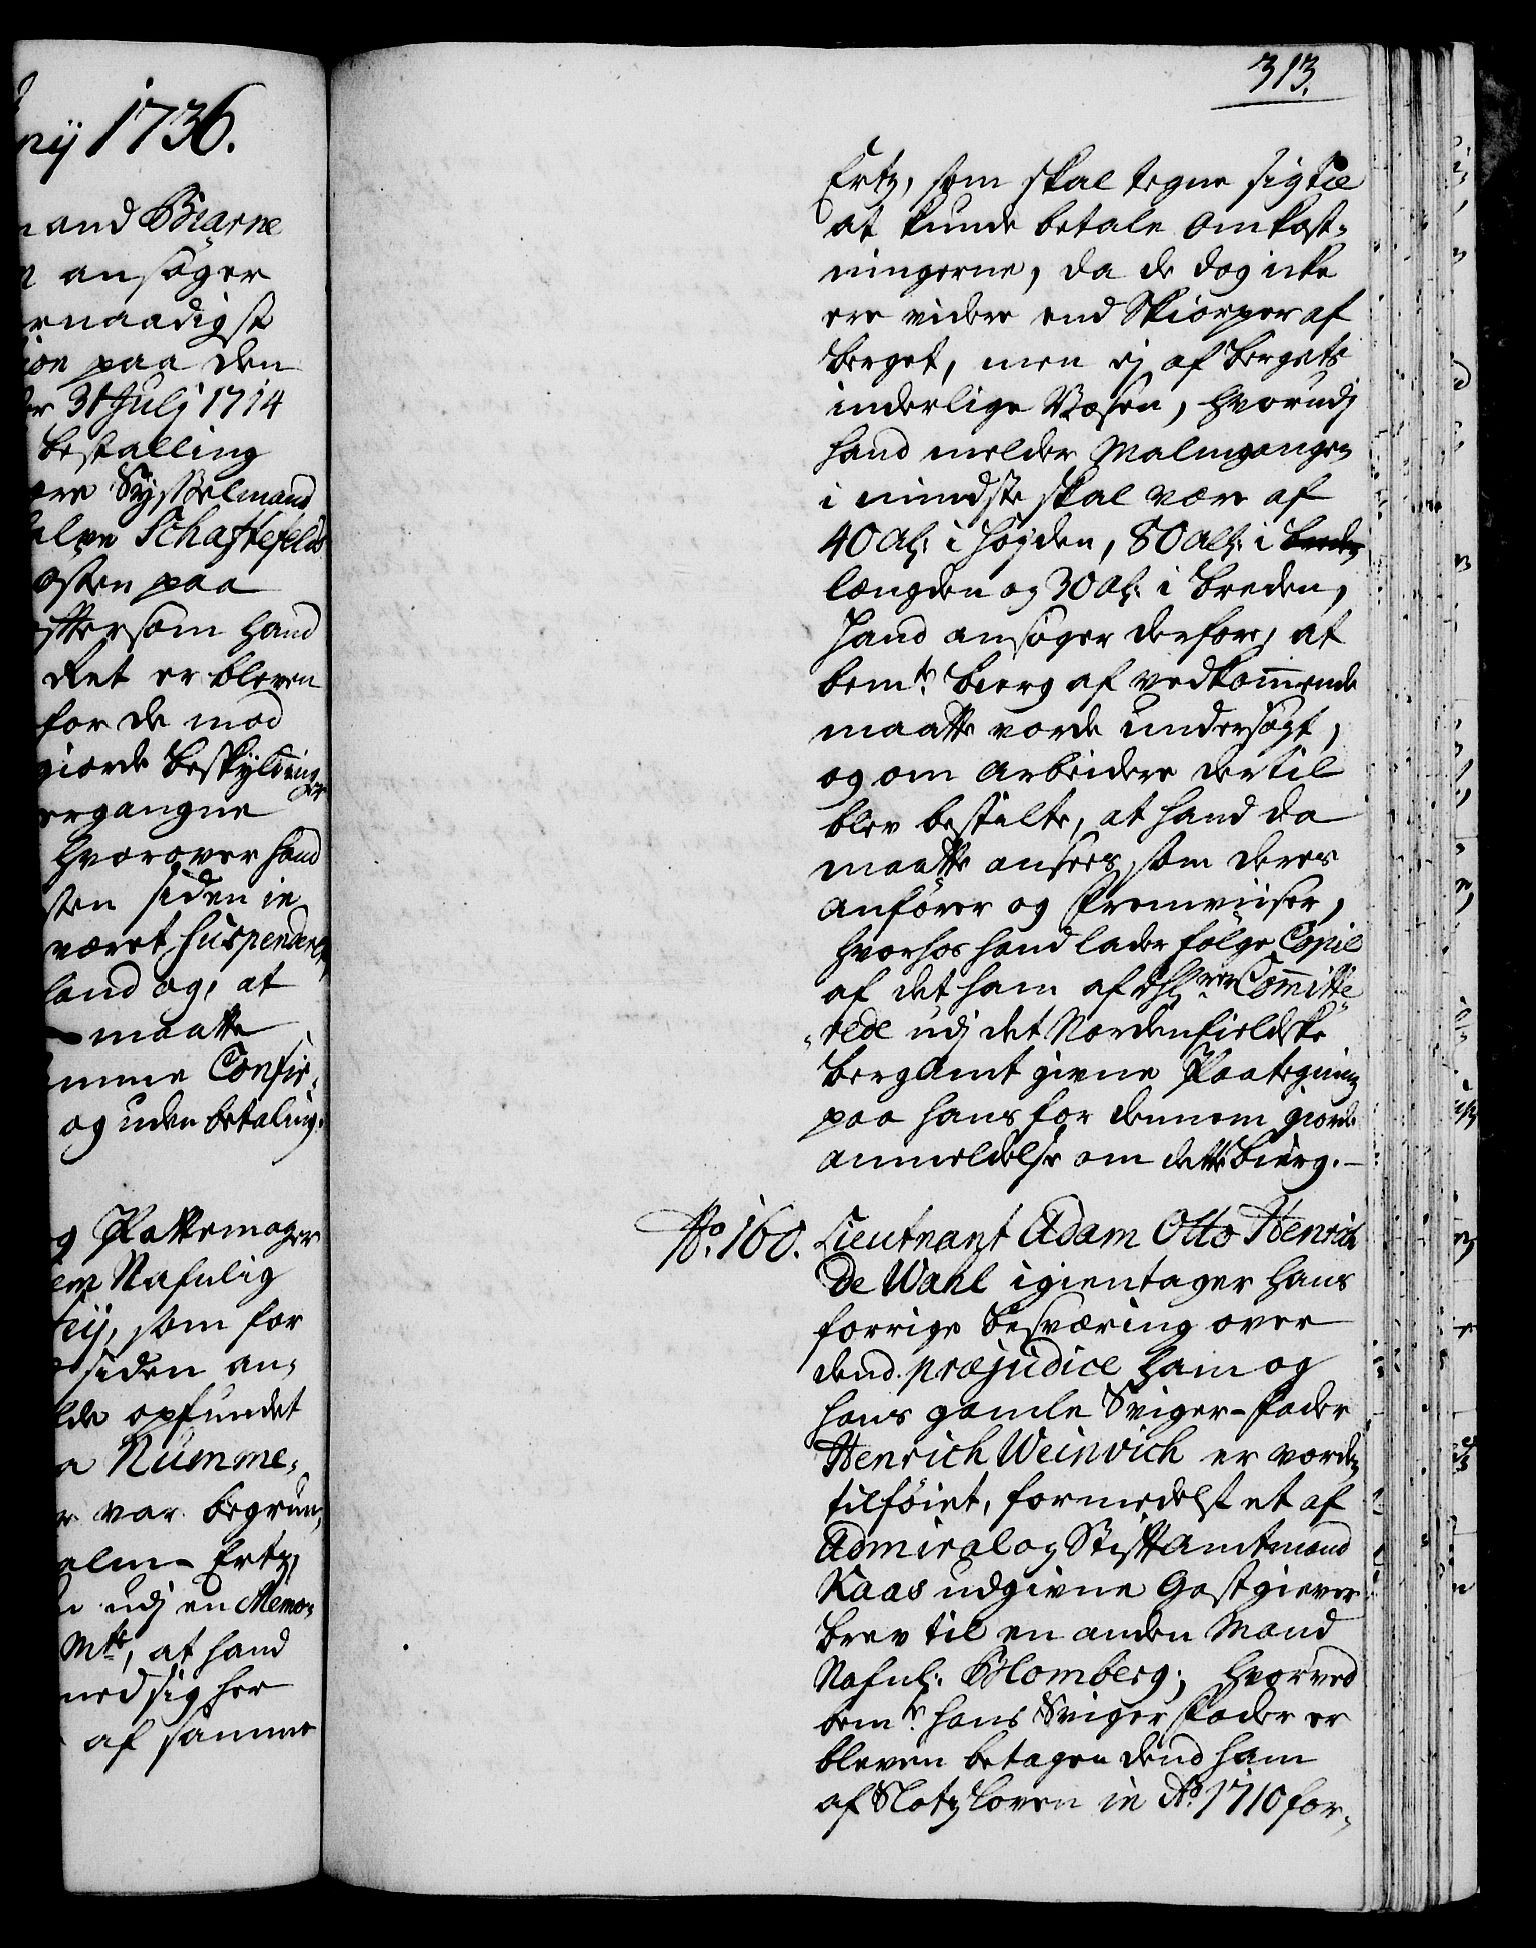 nij 1736.
and Biarne
ansøger
rnaadigst
ion paa den
31 Julj 1714
bestalling
ere Sysselmand
alve Schaftefelds
osten paa
ftersom hand
Ret er bleven
for de mod
giorde beskyldning
er
ergangne
hvorover hand
sten siden in
været suspenderet,
land og, at
maatte
mme Confir-
og uden betaling.
g Pottemager
em Nafnlig
eij, som for
siden an-
lde opfundet
a Numme-
r var begrun-
alm-Ertz,
udj en Memo-
Mtt, at hand
med sig her
af samme
313.
Ertz, som skal tegne sig til
at kunde betale Omkost-
ningerne, da de dog icke
ere videre end Skiorper af
berget, men ej af bergets
inderlige Væsen, hvorudj
hand melder Malmgangen
i mindste skal være af
40 Al: i høyden, 80 Al: i bred
længden og 30 Al: i breden,
Hand ansøger derfor, at
bemte bierg af vedkommende
maatte vorde undersøgt,
og om Arbeidere dertil
blev bestilte, at hand da
maatte ansees som deres
Anfører og Fremviiser,
hvorhos hand lader følge Copie
af det ham af Committe-
rede udj det Nordenfieldske
bergAmt givne Paategning
paa hans for dennem giorde
anmeldelse om dette bierg.
No. 160. Lieutnant Adam Otto Henrich
de Wahl igientager hans
forrige besværing over
dend præjudice ham og
hans gamle Sviger-Fader
Henrich Weinvich er vorden
tilføiet, formedelst et af
Admiral og Stiftamtmand
Kaas udgivne Gastgiever
brev til en anden Mand
Nafnl: Blomberg; hvorved
bemte hans Sviger Fader er
bleven betagen dend ham
af Slotzloven in Ao 1710 for-